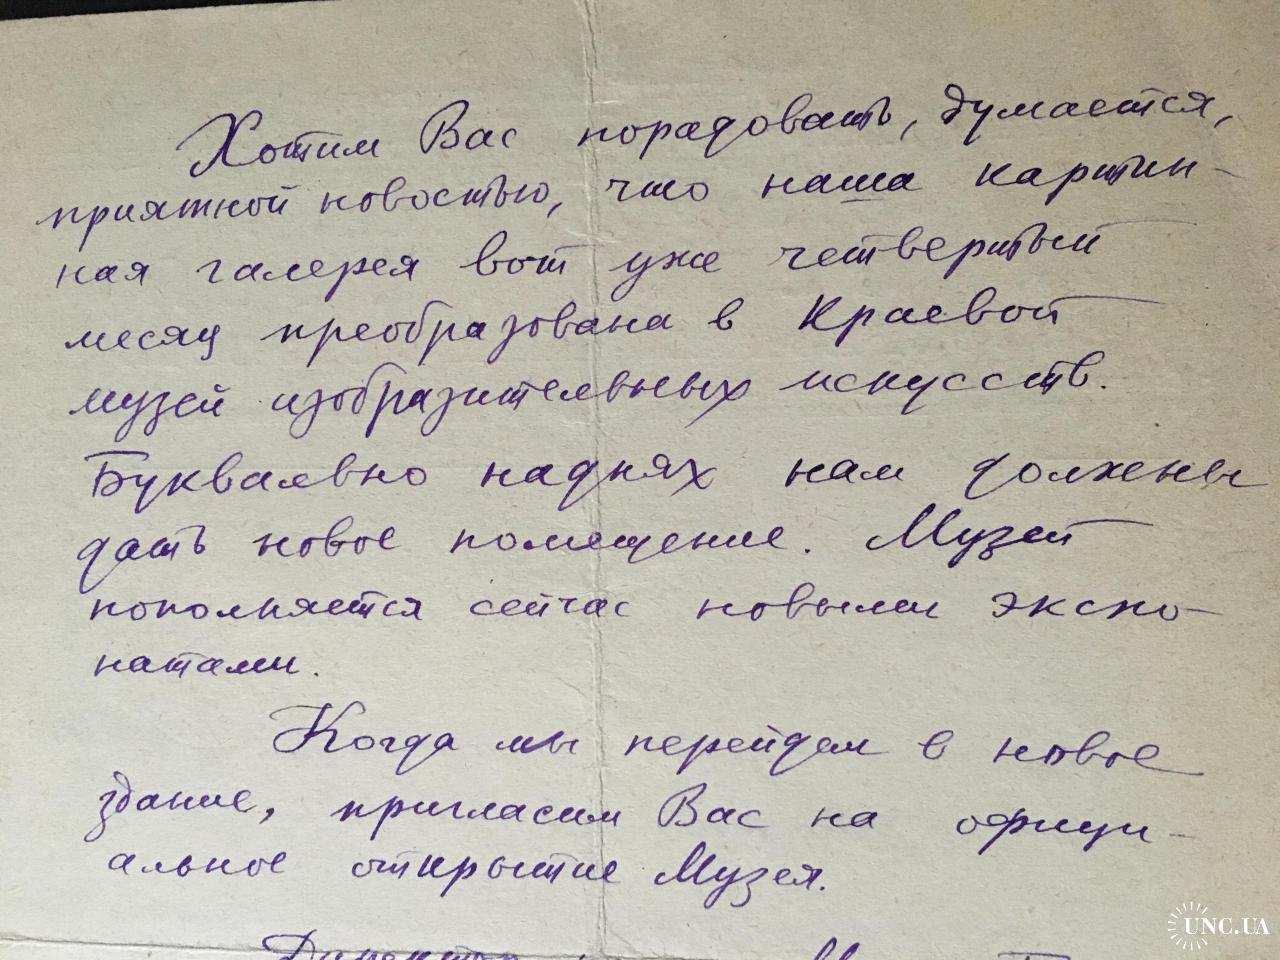 Хотим Вас порадовать, думается,
приятной новостью, что наша картин-
ная галерея вот уже четвертый
месяц преобразована в Краевой
музей изобразительных искусств.
Буквально надних нам должены
дать новое помещение. Музей
пополняется сейчас новыми экспо-
натами.
Когда мы перейдем в новое
здание, пригласим Вас на офици-
альное открытие Музея.
Директор
UNC.UA